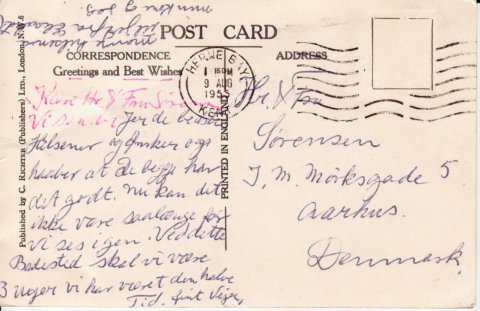 POST CARD
CORRESPONDENCE
ADDRESS
Greetings and Best Wishes
HERNE BAY
9 AUG
195
KENT
Published by C. RICHTER (Publishers) LTD., London, N.W.6
PRINTED IN ENGLAND
Kære Hr & Fru
Vi sender Jer de bedste
Hilsener og ønsker og
haaber at De begge har
det godt. Nu kan det
ikke være saalænge før
vi ses igen. Ved dette
Badested skal vi være
3 uger vi har været den halve
Tid. fint Vejr,
Hr & Fru
Sörensen
J. M. Mörksgade 5
Aarhus.
Denmark.